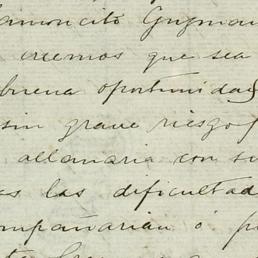 amoncito Guzman
creemos que sea
buena oportunidad
sin grave riesgo
allanaria con su
as las dificultad
ompañarian ó p